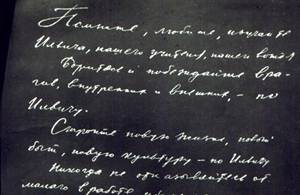 Помните, любите, изучайте
Ильича, нашего учителя, нашего вождя.
Боритесь и побеждайте вра-
гов, внутренних и внешних, – по
Ильичу.
Стройте новую жизнь, новый
быт, новую культуру – по Ильичу
Никогда не отказывайтесь от
малого в работе